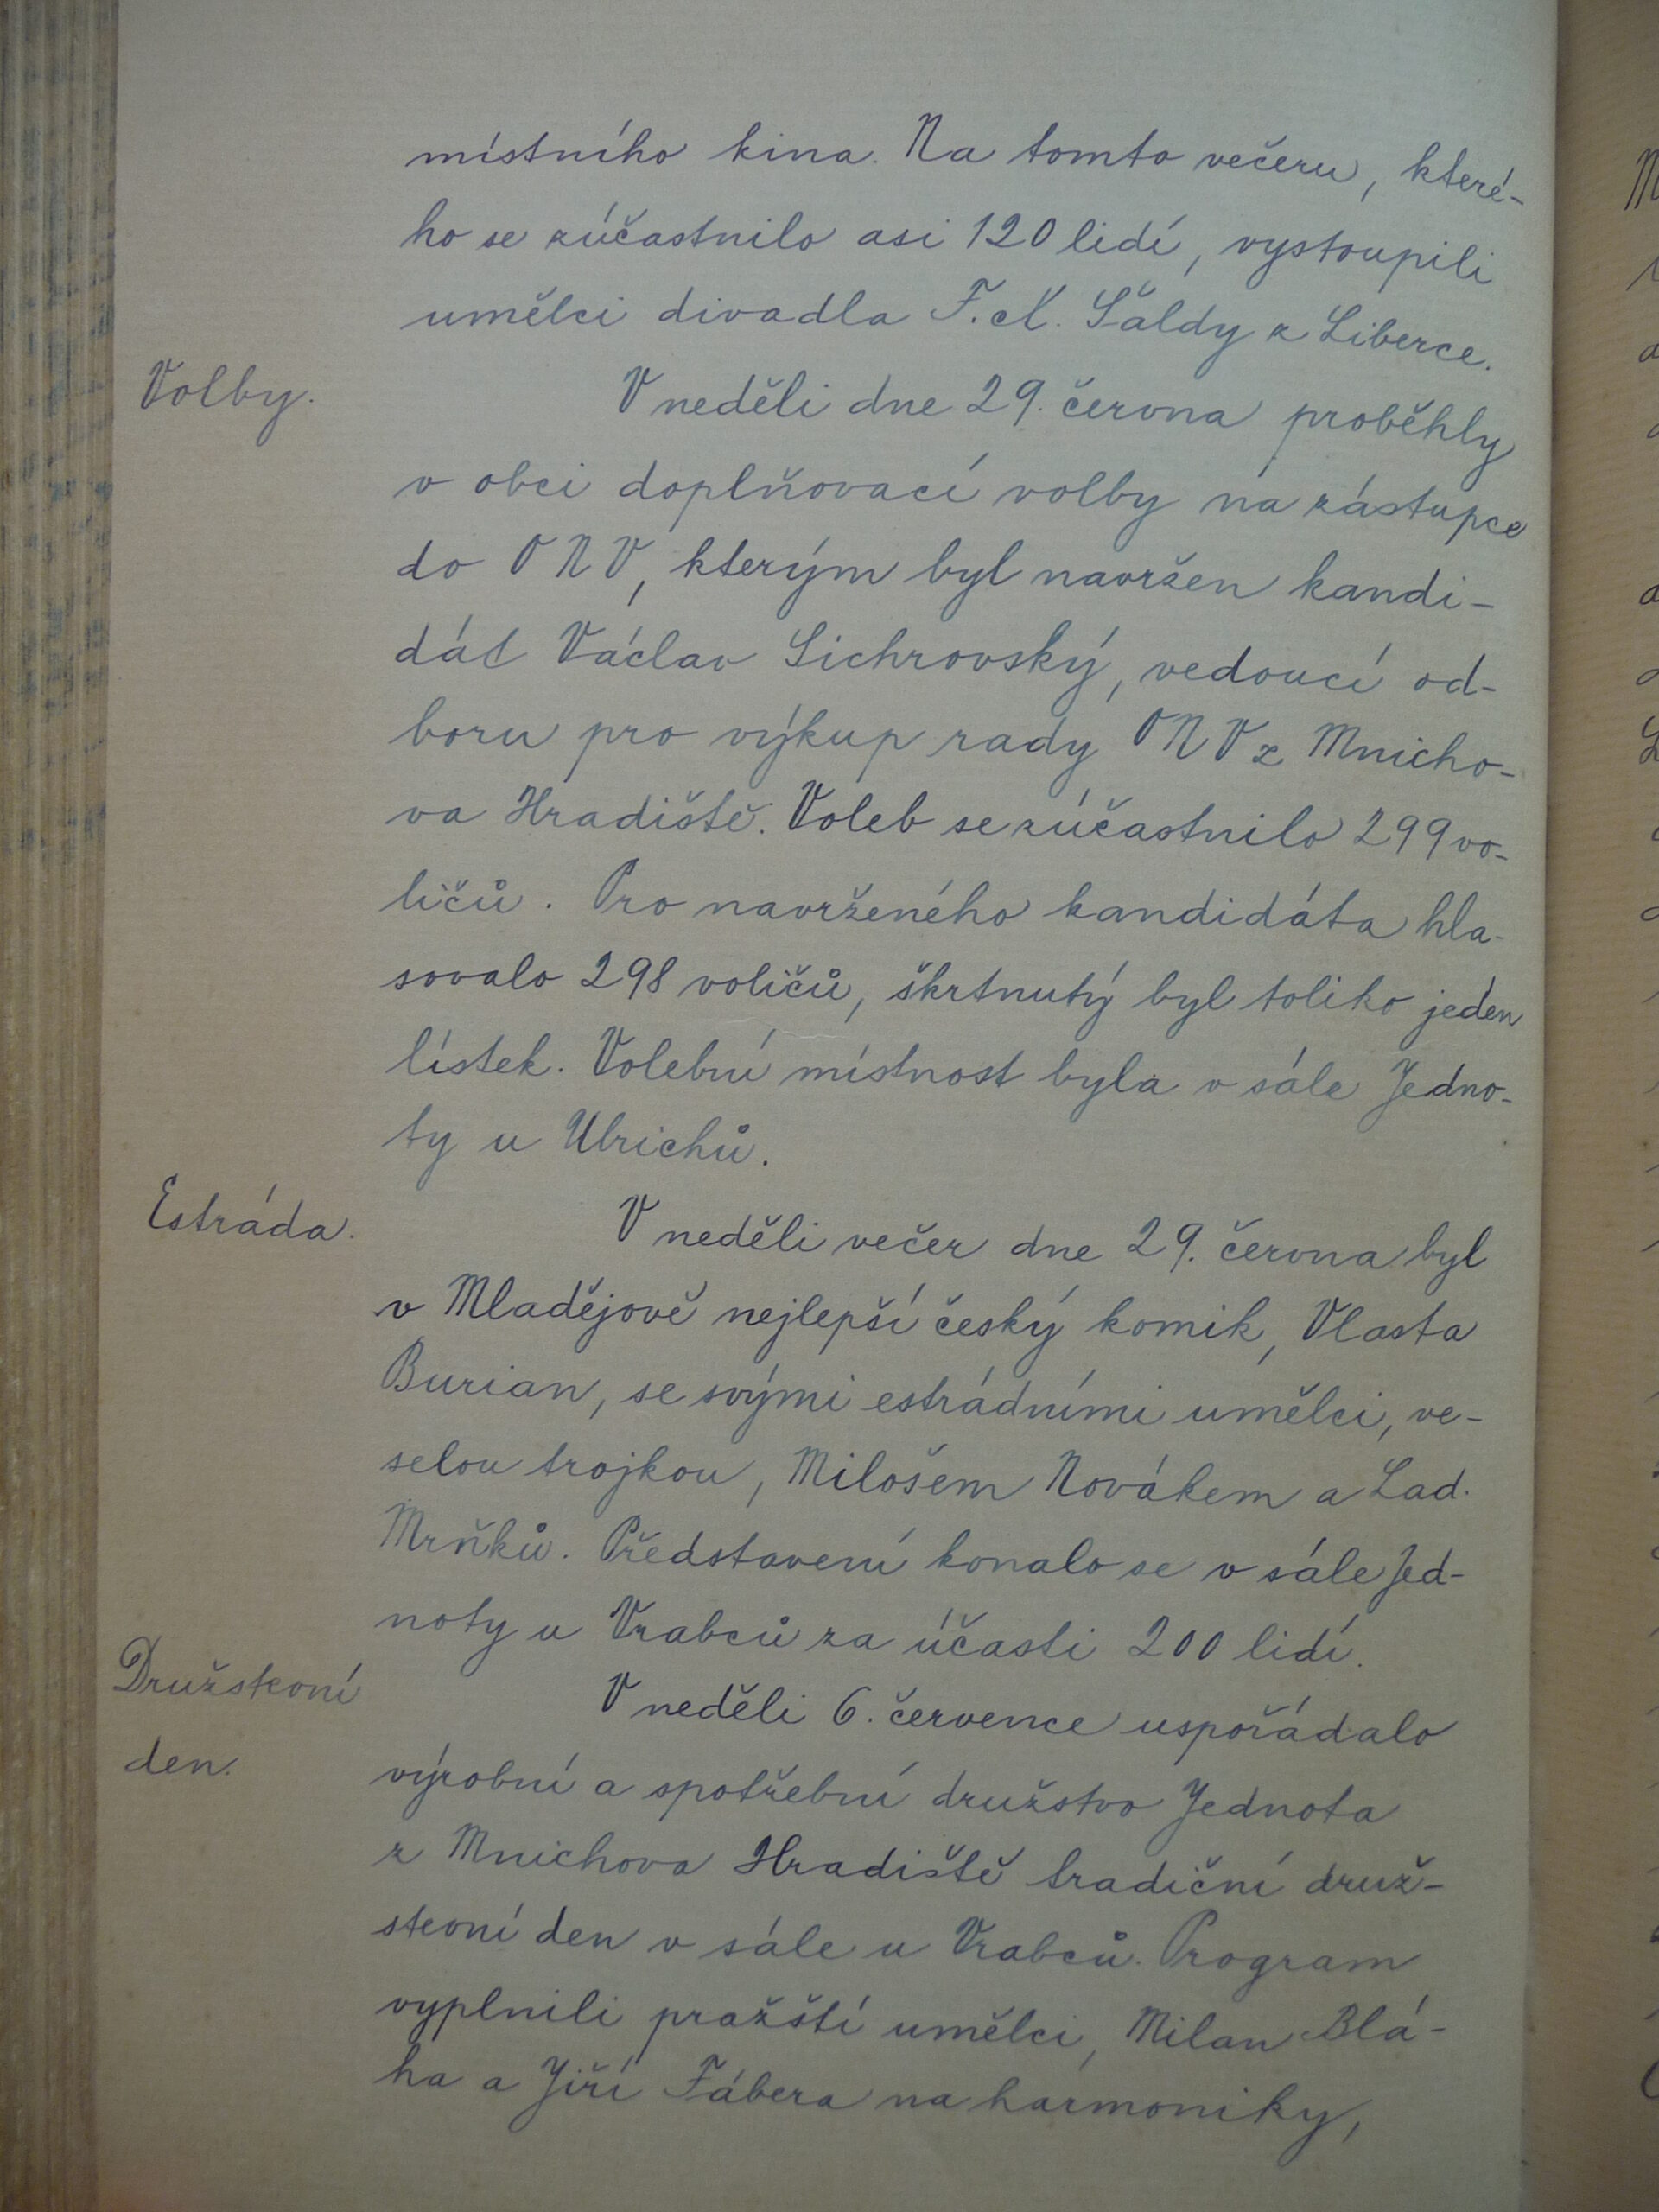 místního kina. Na tomto večeru, které-
ho se zúčastnilo asi 120 lidí, vystoupili
umělci divadla F. X. Šaldy z Liberce.
Volby.
V neděli dne 29. června proběhly
v obci doplňovací volby na zástupce
do ONV, kterým byl navržen kandi-
dát Václav Lichrovský, vedoucí od-
boru pro výkup rady ONV z Mnicho-
va Hradiště. Voleb se zúčastnilo 299 vo-
ličů. Pro navrženého kandidáta hla-
sovalo 298 voličů, škrtnutý byl toliko jeden
lístek. Volební místnost byla v sále Jedno-
ty u Ulrichů.
Estráda.
V neděli večer dne 29. června byl
v Mladějově nejlepší český komik, Vlasta
Burian, se svými estrádními umělci, ve-
selou trojkou, Milošem Novákem a Lad.
Mrňků. Představení konalo se v sále Jed-
noty u Vrabců za účasti 200 lidí.
Družstevní
den.
V neděli 6. července uspořádalo
výrobní a spotřební družstvo Jednota
z Mnichova Hradiště tradiční druž-
stevní den v sále u Vrabců. Program
vyplnili pražští umělci, Milan Blá-
ha a Jiří Fábera na harmoniky,